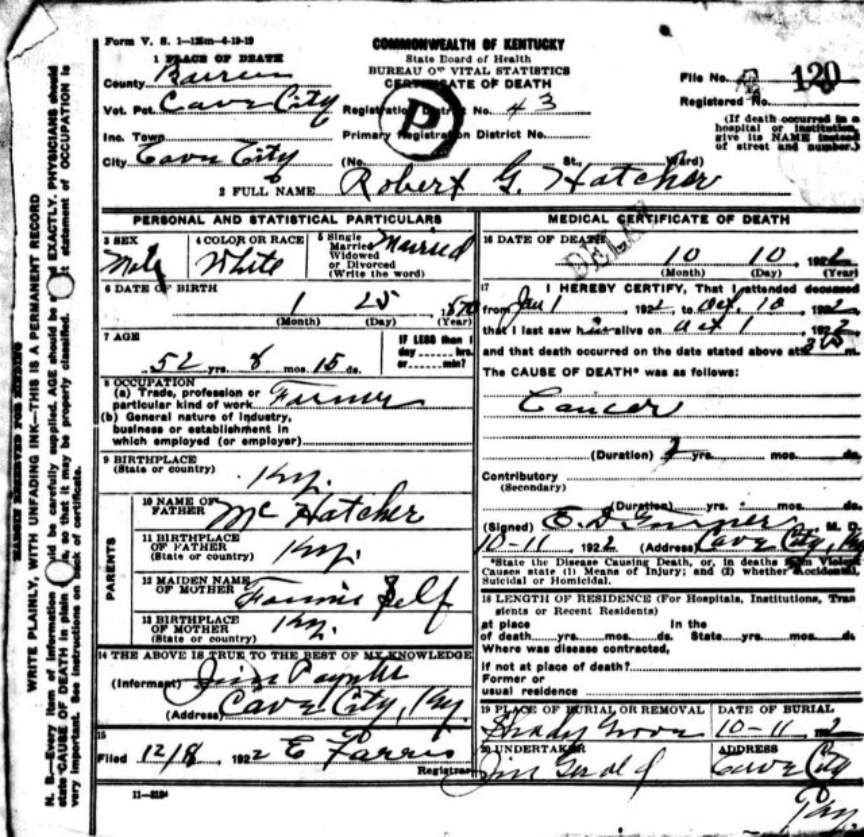 Form V. S. 1—125m—6-19-19
COMMONWEALTH OF KENTUCKY
State Board of Health
BUREAU OF VITAL STATISTICS
CERTIFICATE OF DEATH
1 PLACE OF DEATH
County Barren
Vot. Pct. Cave City
Inc. Town
City Cave City
Registration District No. 43
Primary Registration District No.
(No. St., Ward)
File No. 120
Registered No.
(If death occurred in a
hospital or institution,
give its NAME instead
of street and number.)
P
2 FULL NAME Robert G. Hatcher
PERSONAL AND STATISTICAL PARTICULARS
3 SEX Male
4 COLOR OR RACE White
5 Single
Married
Widowed
or Divorced
(Write the word) Married
6 DATE OF BIRTH
1 25 1870
(Month) (Day) (Year)
7 AGE
52 yrs. 8 mos. 15 ds.
IF LESS than 1
day hrs.
or min?
8 OCCUPATION
(a) Trade, profession or
particular kind of work Farmer
(b) General nature of industry,
business or establishment in
which employed (or employer)
9 BIRTHPLACE
(State or country) Ky.
PARENTS
10 NAME OF
FATHER Mc Hatcher
11 BIRTHPLACE
OF FATHER
(State or country) Ky.
12 MAIDEN NAME
OF MOTHER Fannie Self
13 BIRTHPLACE
OF MOTHER
(State or country) Ky.
14 THE ABOVE IS TRUE TO THE BEST OF MY KNOWLEDGE
(Informant) Jim Paynter
(Address) Cave City, Ky.
15
Filed 12/8, 1922 E Farris
Registrar
11—
MEDICAL CERTIFICATE OF DEATH
DELAY
16 DATE OF DEATH
10 10, 1922
(Month) (Day) (Year)
17 I HEREBY CERTIFY, That I attended deceased
from Jan 1 1922, to Oct. 10 1922
that I last saw him alive on Oct 1 1922
and that death occurred on the date stated above at m.
The CAUSE OF DEATH* was as follows:
Cancer
(Duration) yrs. mos. ds.
Contributory
(Secondary)
(Duration) yrs. mos. ds.
(Signed) E. D. Turner M. D.
10-11, 1922 (Address) Cave City, Ky
*State the Disease Causing Death, or, in deaths from Violent
Causes state (1) Means of Injury; and (2) whether Accidental,
Suicidal or Homicidal.
18 LENGTH OF RESIDENCE (For Hospitals, Institutions, Tran
sients or Recent Residents)
at place In the
of death yrs. mos. ds. State yrs. mos. ds.
Where was disease contracted,
if not at place of death?
Former or
usual residence
19 PLACE OF BURIAL OR REMOVAL Shady Grove
DATE OF BURIAL 10-11 1922
20 UNDERTAKER Jim Gerald
ADDRESS Cave City
Ky.
MARGIN RESERVED FOR BINDING
WRITE PLAINLY, WITH UNFADING INK—THIS IS A PERMANENT RECORD
N. B.—Every item of information should be carefully supplied. AGE should be stated EXACTLY. PHYSICIANS should
state CAUSE OF DEATH in plain terms, so that it may be properly classified. Exact statement of OCCUPATION is
very important. See instructions on back of certificate.